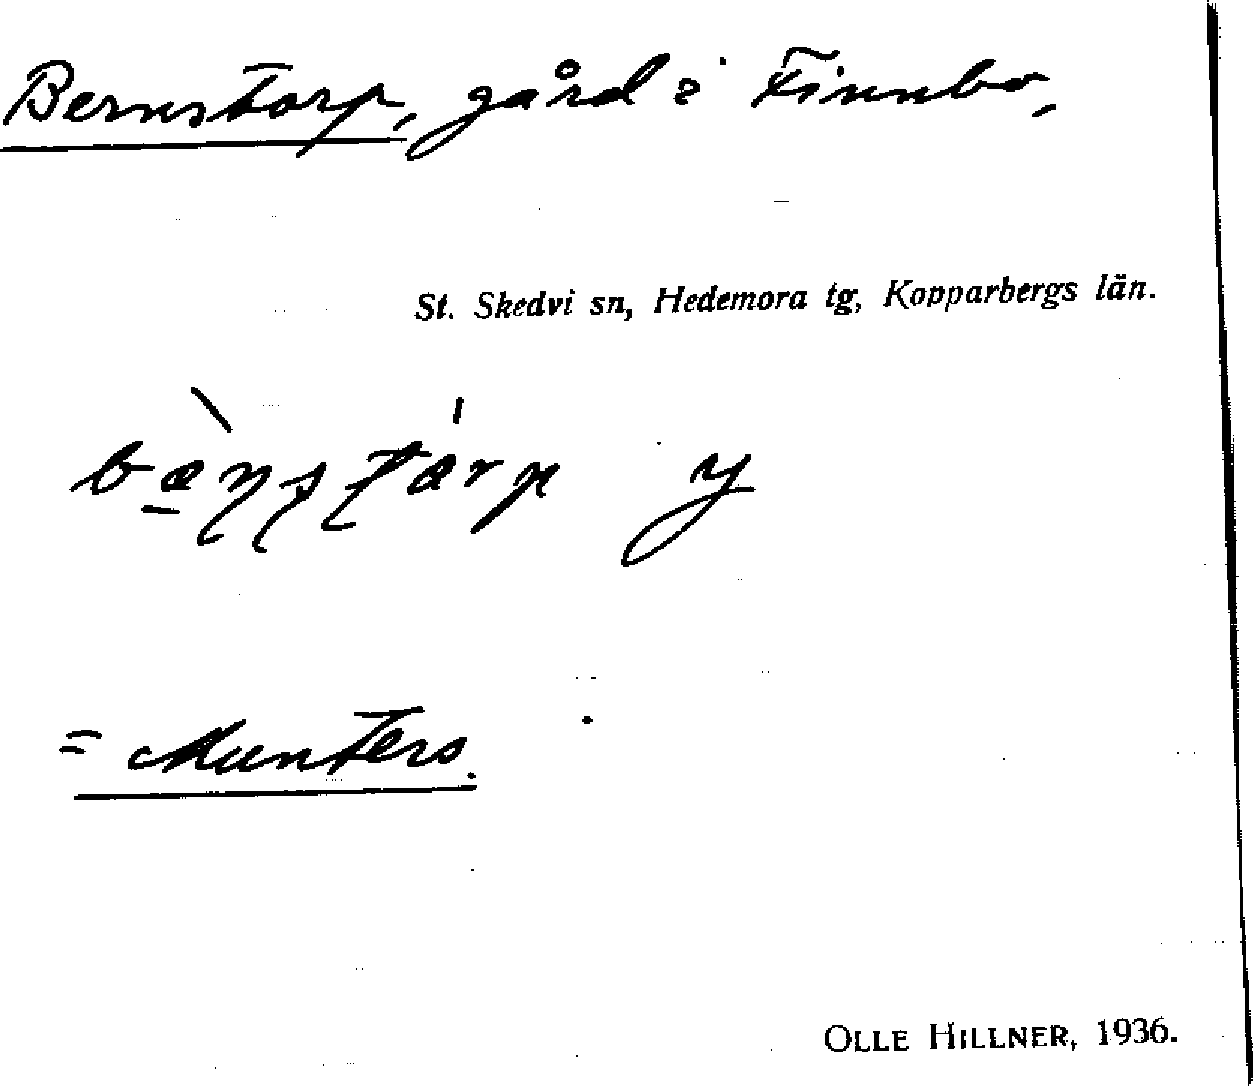 Bernstorp, gård i Finnbo,
St. Skedvi sn, Hedemora tg, Kopparbergs län.
y
= Munters.
OLLE HILLNER, 1936.